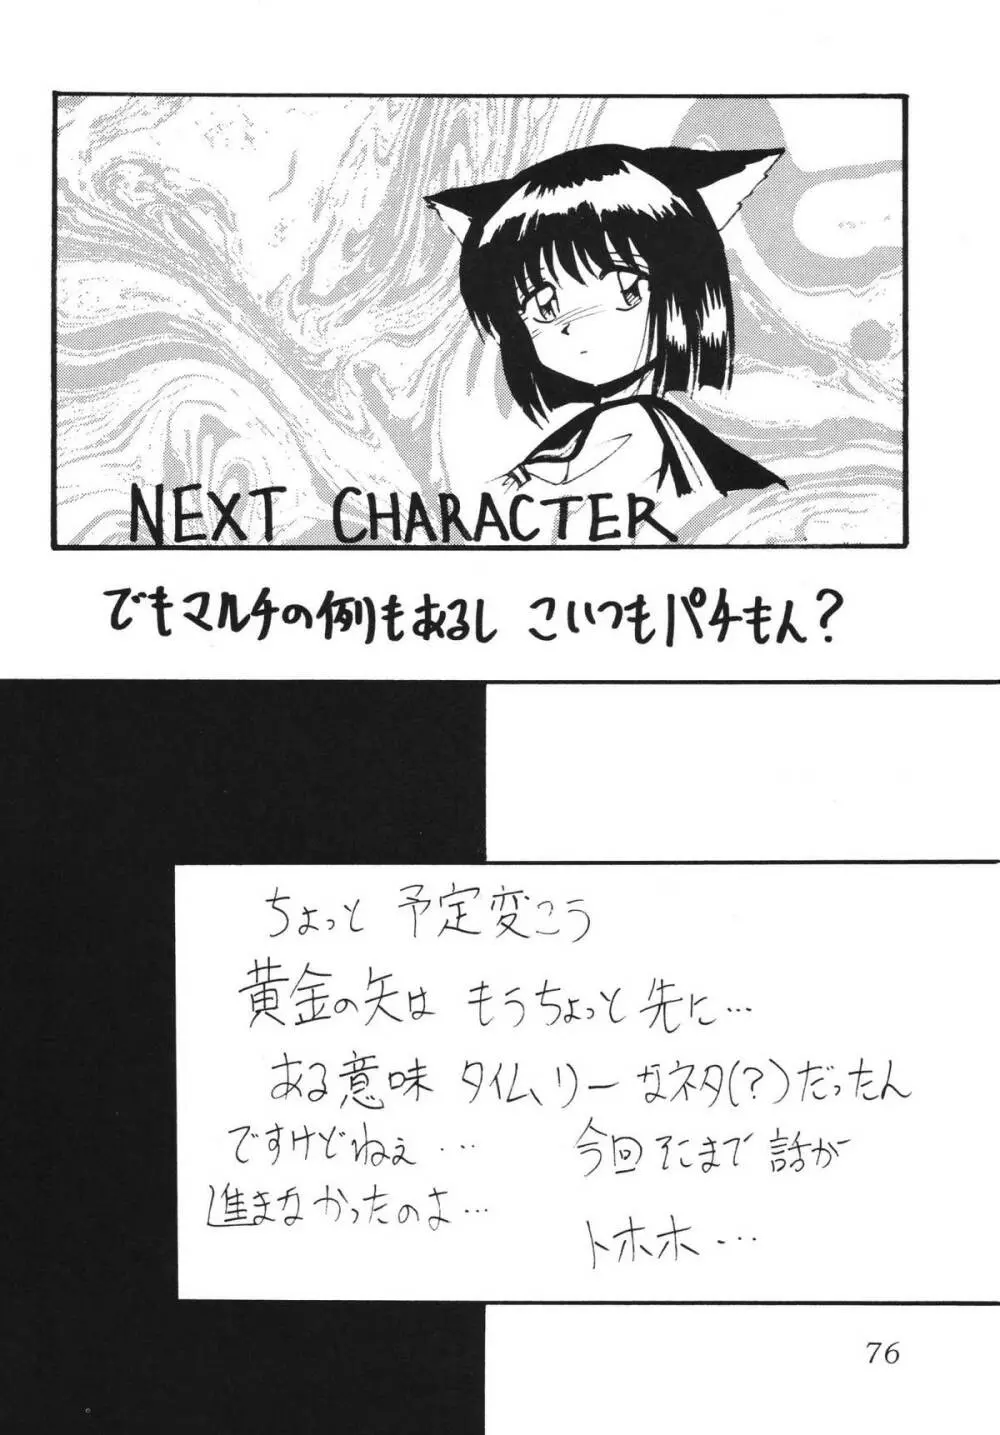 NEXT CHARACTER
でもマルチの例もあるし こいつもパチもん?
ちょっと 予定変こう
黄金の矢は もうちょっと先に…
ある意味 タイムリーなネタ(?)だったん
ですけどねぇ… 今回そこまで話が
進まなかったのよ…
トホホ…
76